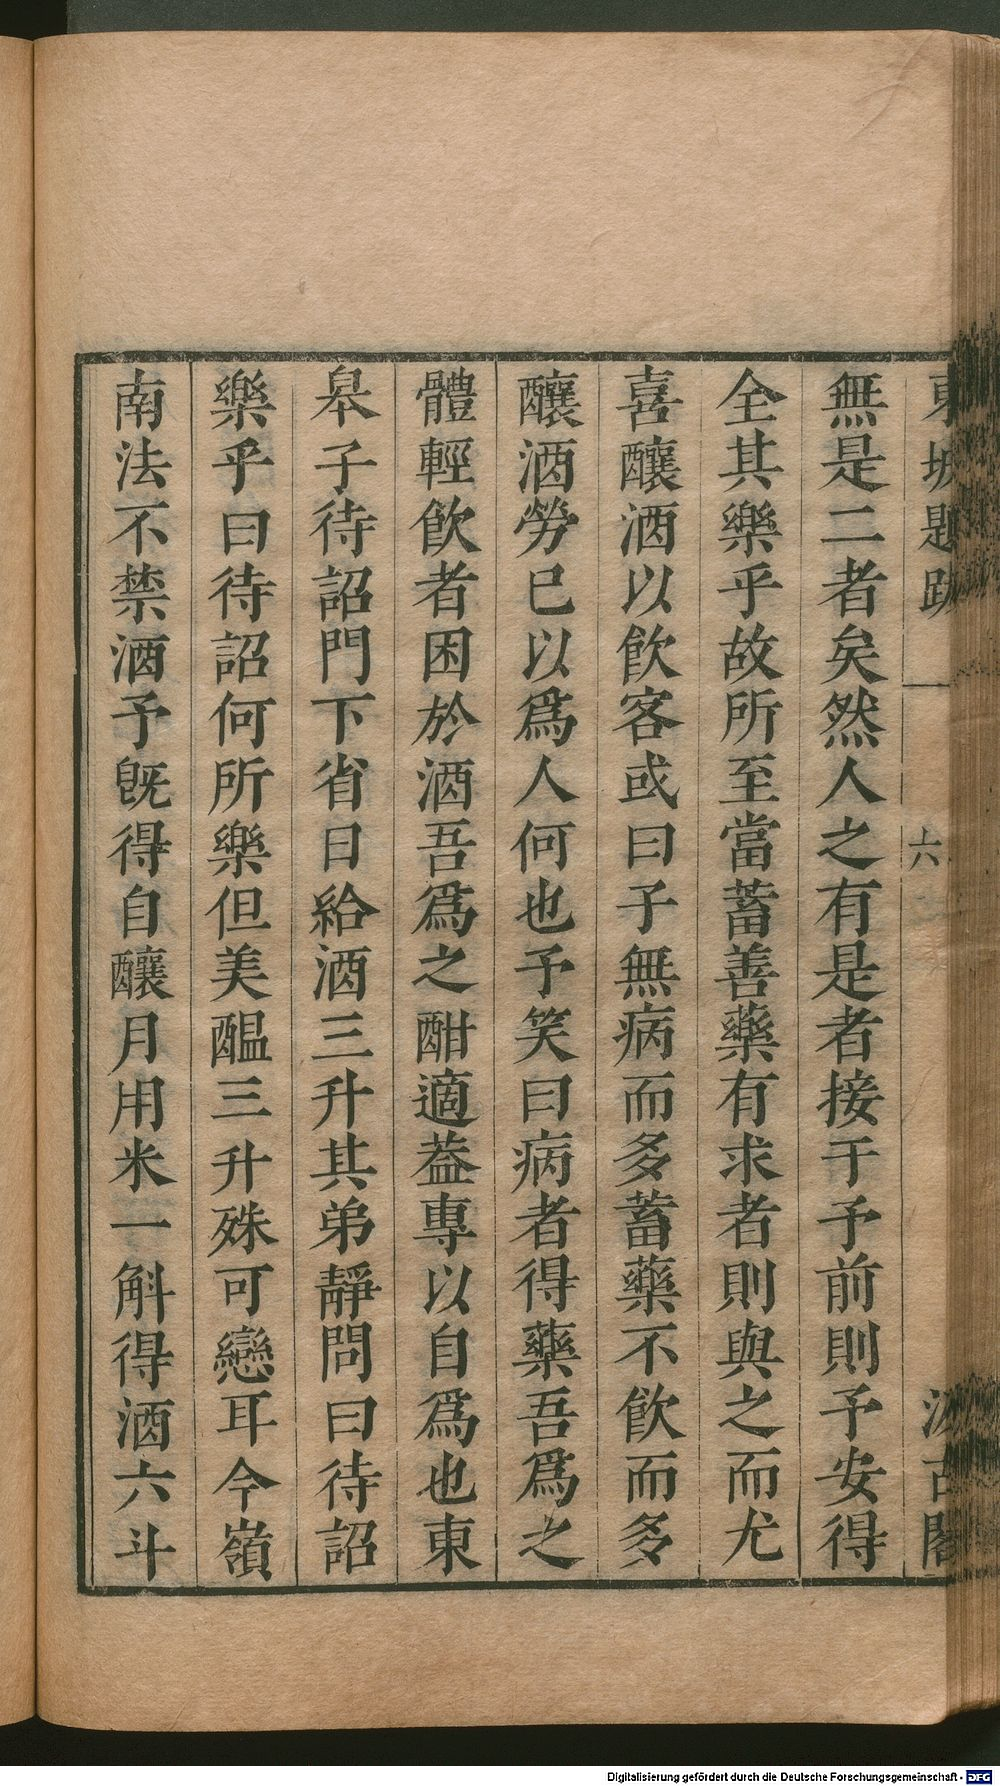 東坡題跋 一 六 汲古閣
無是二者矣然人之有是者接于予前則予安得
全其樂乎故所至當蓄善藥有求者則與之而尤
喜釀酒以飲客或曰子無病而多蓄藥不飲而多
釀酒勞已以爲人何也予笑曰病者得藥吾爲之
體輕飲者困於酒吾爲之酣適葢專以自爲也東
皋子待詔門下省日給酒三升其弟靜問曰待詔
樂乎曰待詔何所樂但美醞三升殊可戀耳今嶺
南法不禁酒予旣得自釀月用米一斛得酒六斗
Digitalisierung gefördert durch die Deutsche Forschungsgemeinschaft - DFG